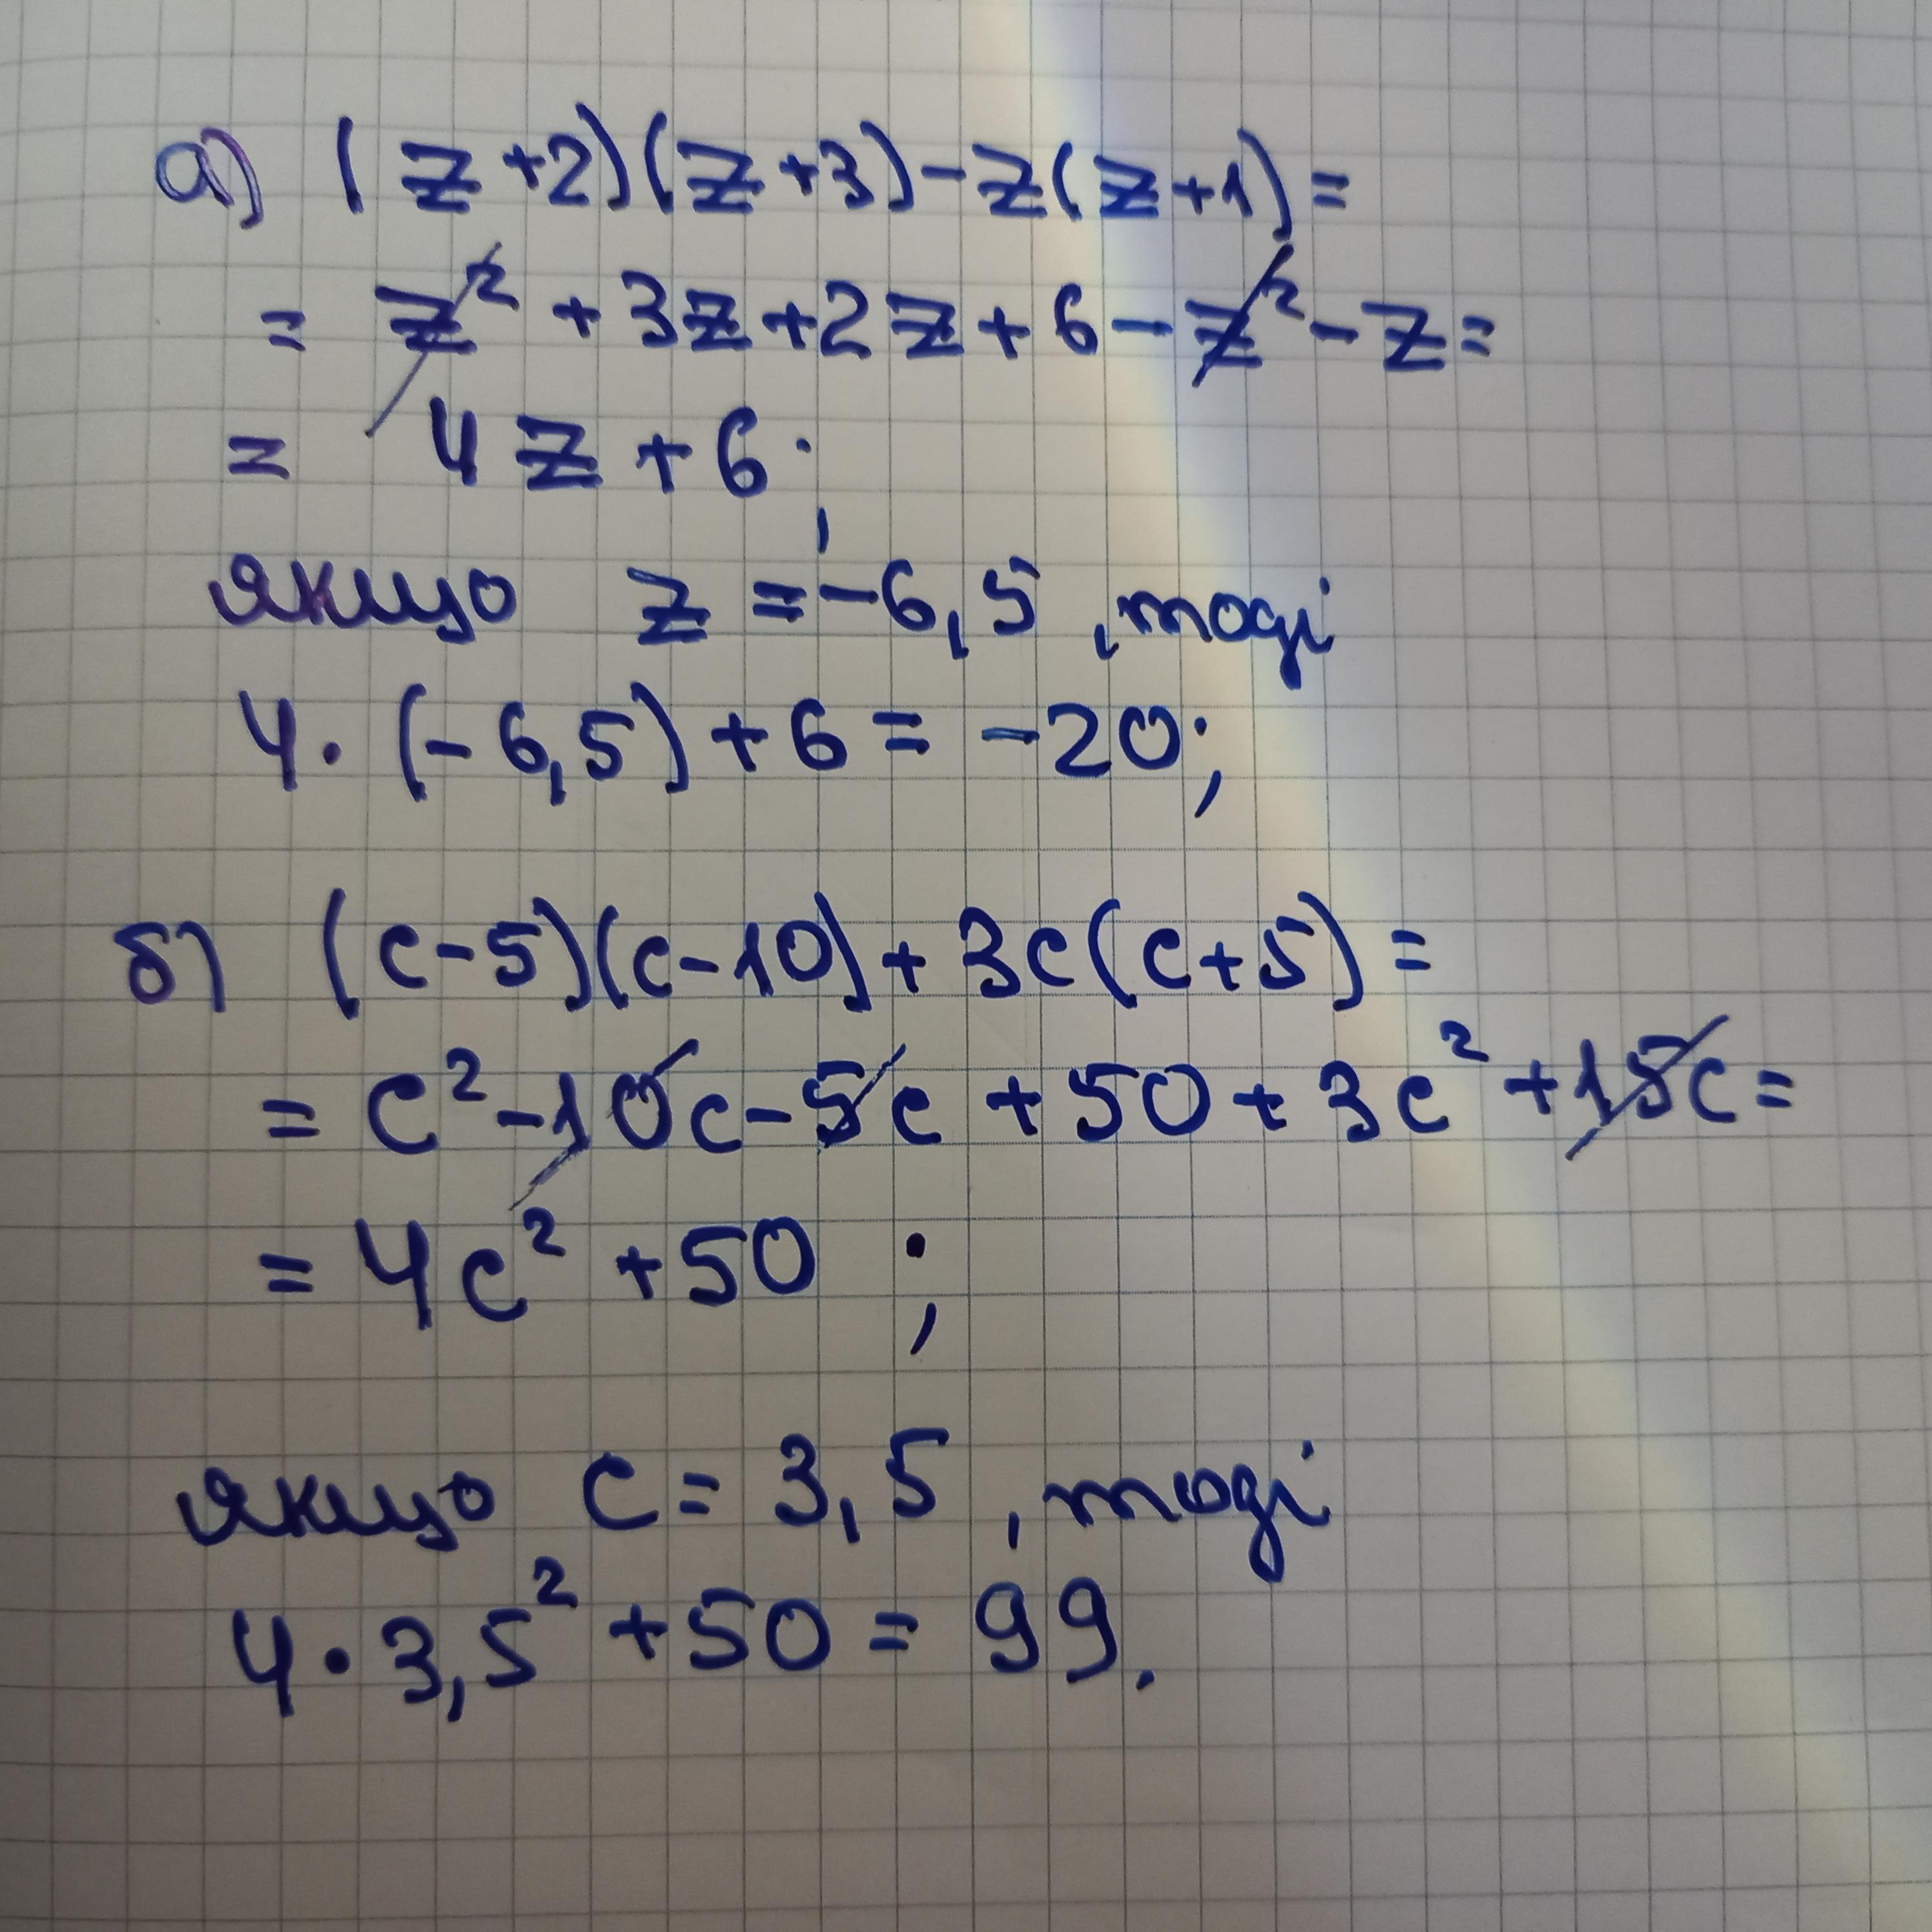 а) (z+2)(z+3)-z(z+1)=
= z² +3z+2z+6-z²-z=
= 4z+6;
якщо z=-6,5, тоді
4·(-6,5)+6=-20;
б) (c-5)(c-10)+3c(c+5)=
= c²-10c-5c+50+3c²+15c=
= 4c²+50;
якщо c=3,5, тоді
4·3,5²+50=99.